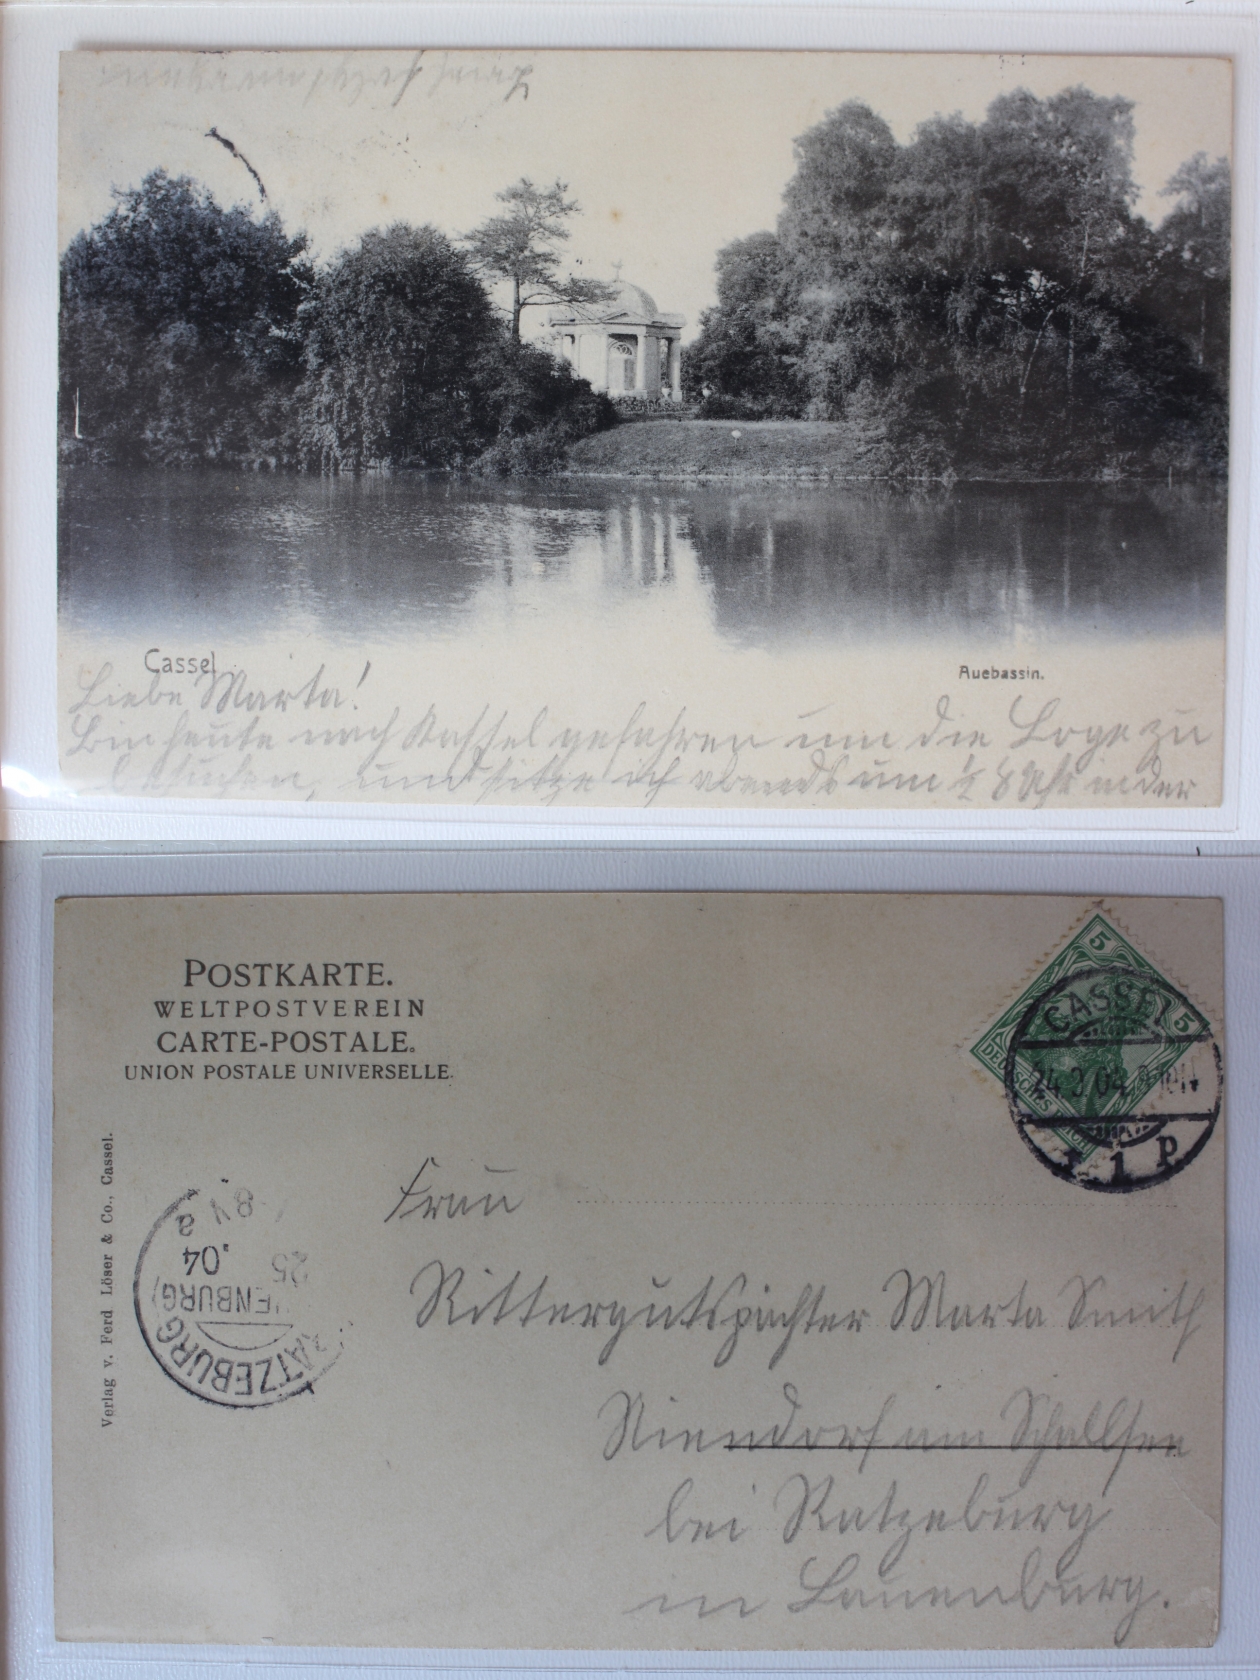 Cassel
Auebassin.
Liebe Marta!
Bin heute nach Kassel gefahren um die Loge zu
besuchen, und sitze ich abends um ½ 8 Uhr in der
POSTKARTE.
WELTPOSTVEREIN
CARTE-POSTALE.
UNION POSTALE UNIVERSELLE.
Verlag v. Ferd Löser & Co., Cassel.
5
5
DEUTSCHES REICH
CASSEL
24.9.04
1 p
RATZEBURG
ENBURG)
25
.04
8V
a
Frau
Rittergutspächter Marta Smith
Niendorf am Schallsee
bei Ratzeburg
in Lauenburg.